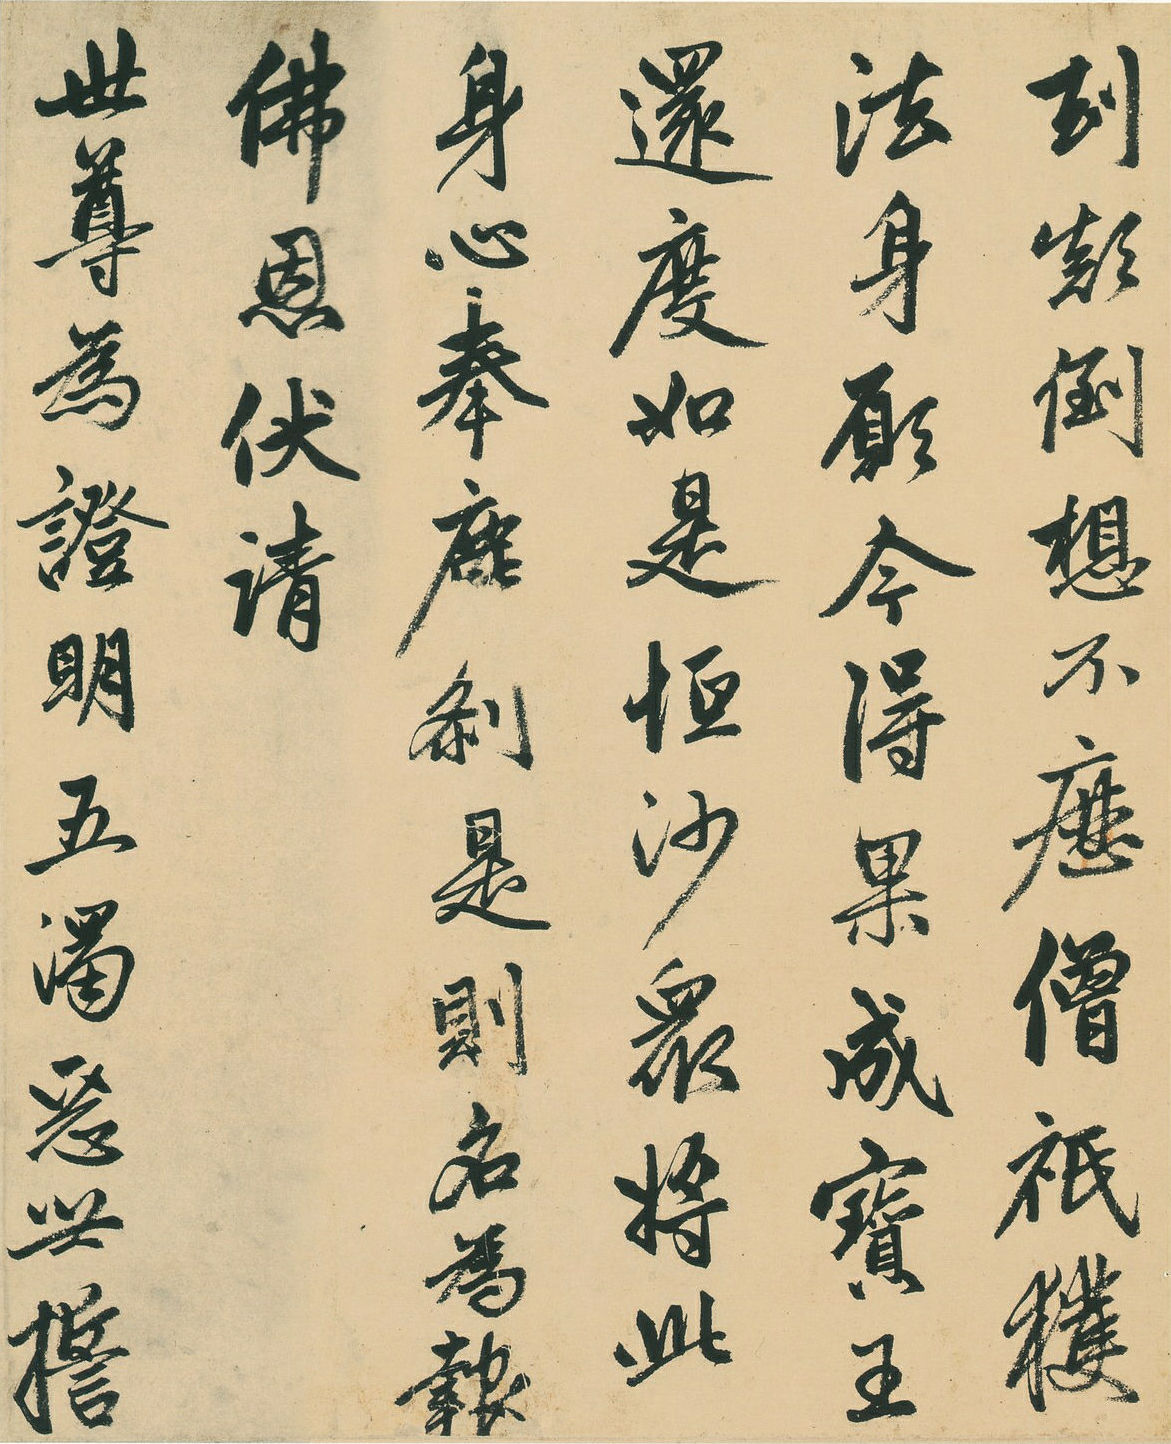 劫顛倒想不歷僧祇穫
法身願今得果成寶王
還度如是恒沙衆將此
身心奉塵刹是則名為報
佛恩伏請
世尊為證明五濁惡世誓